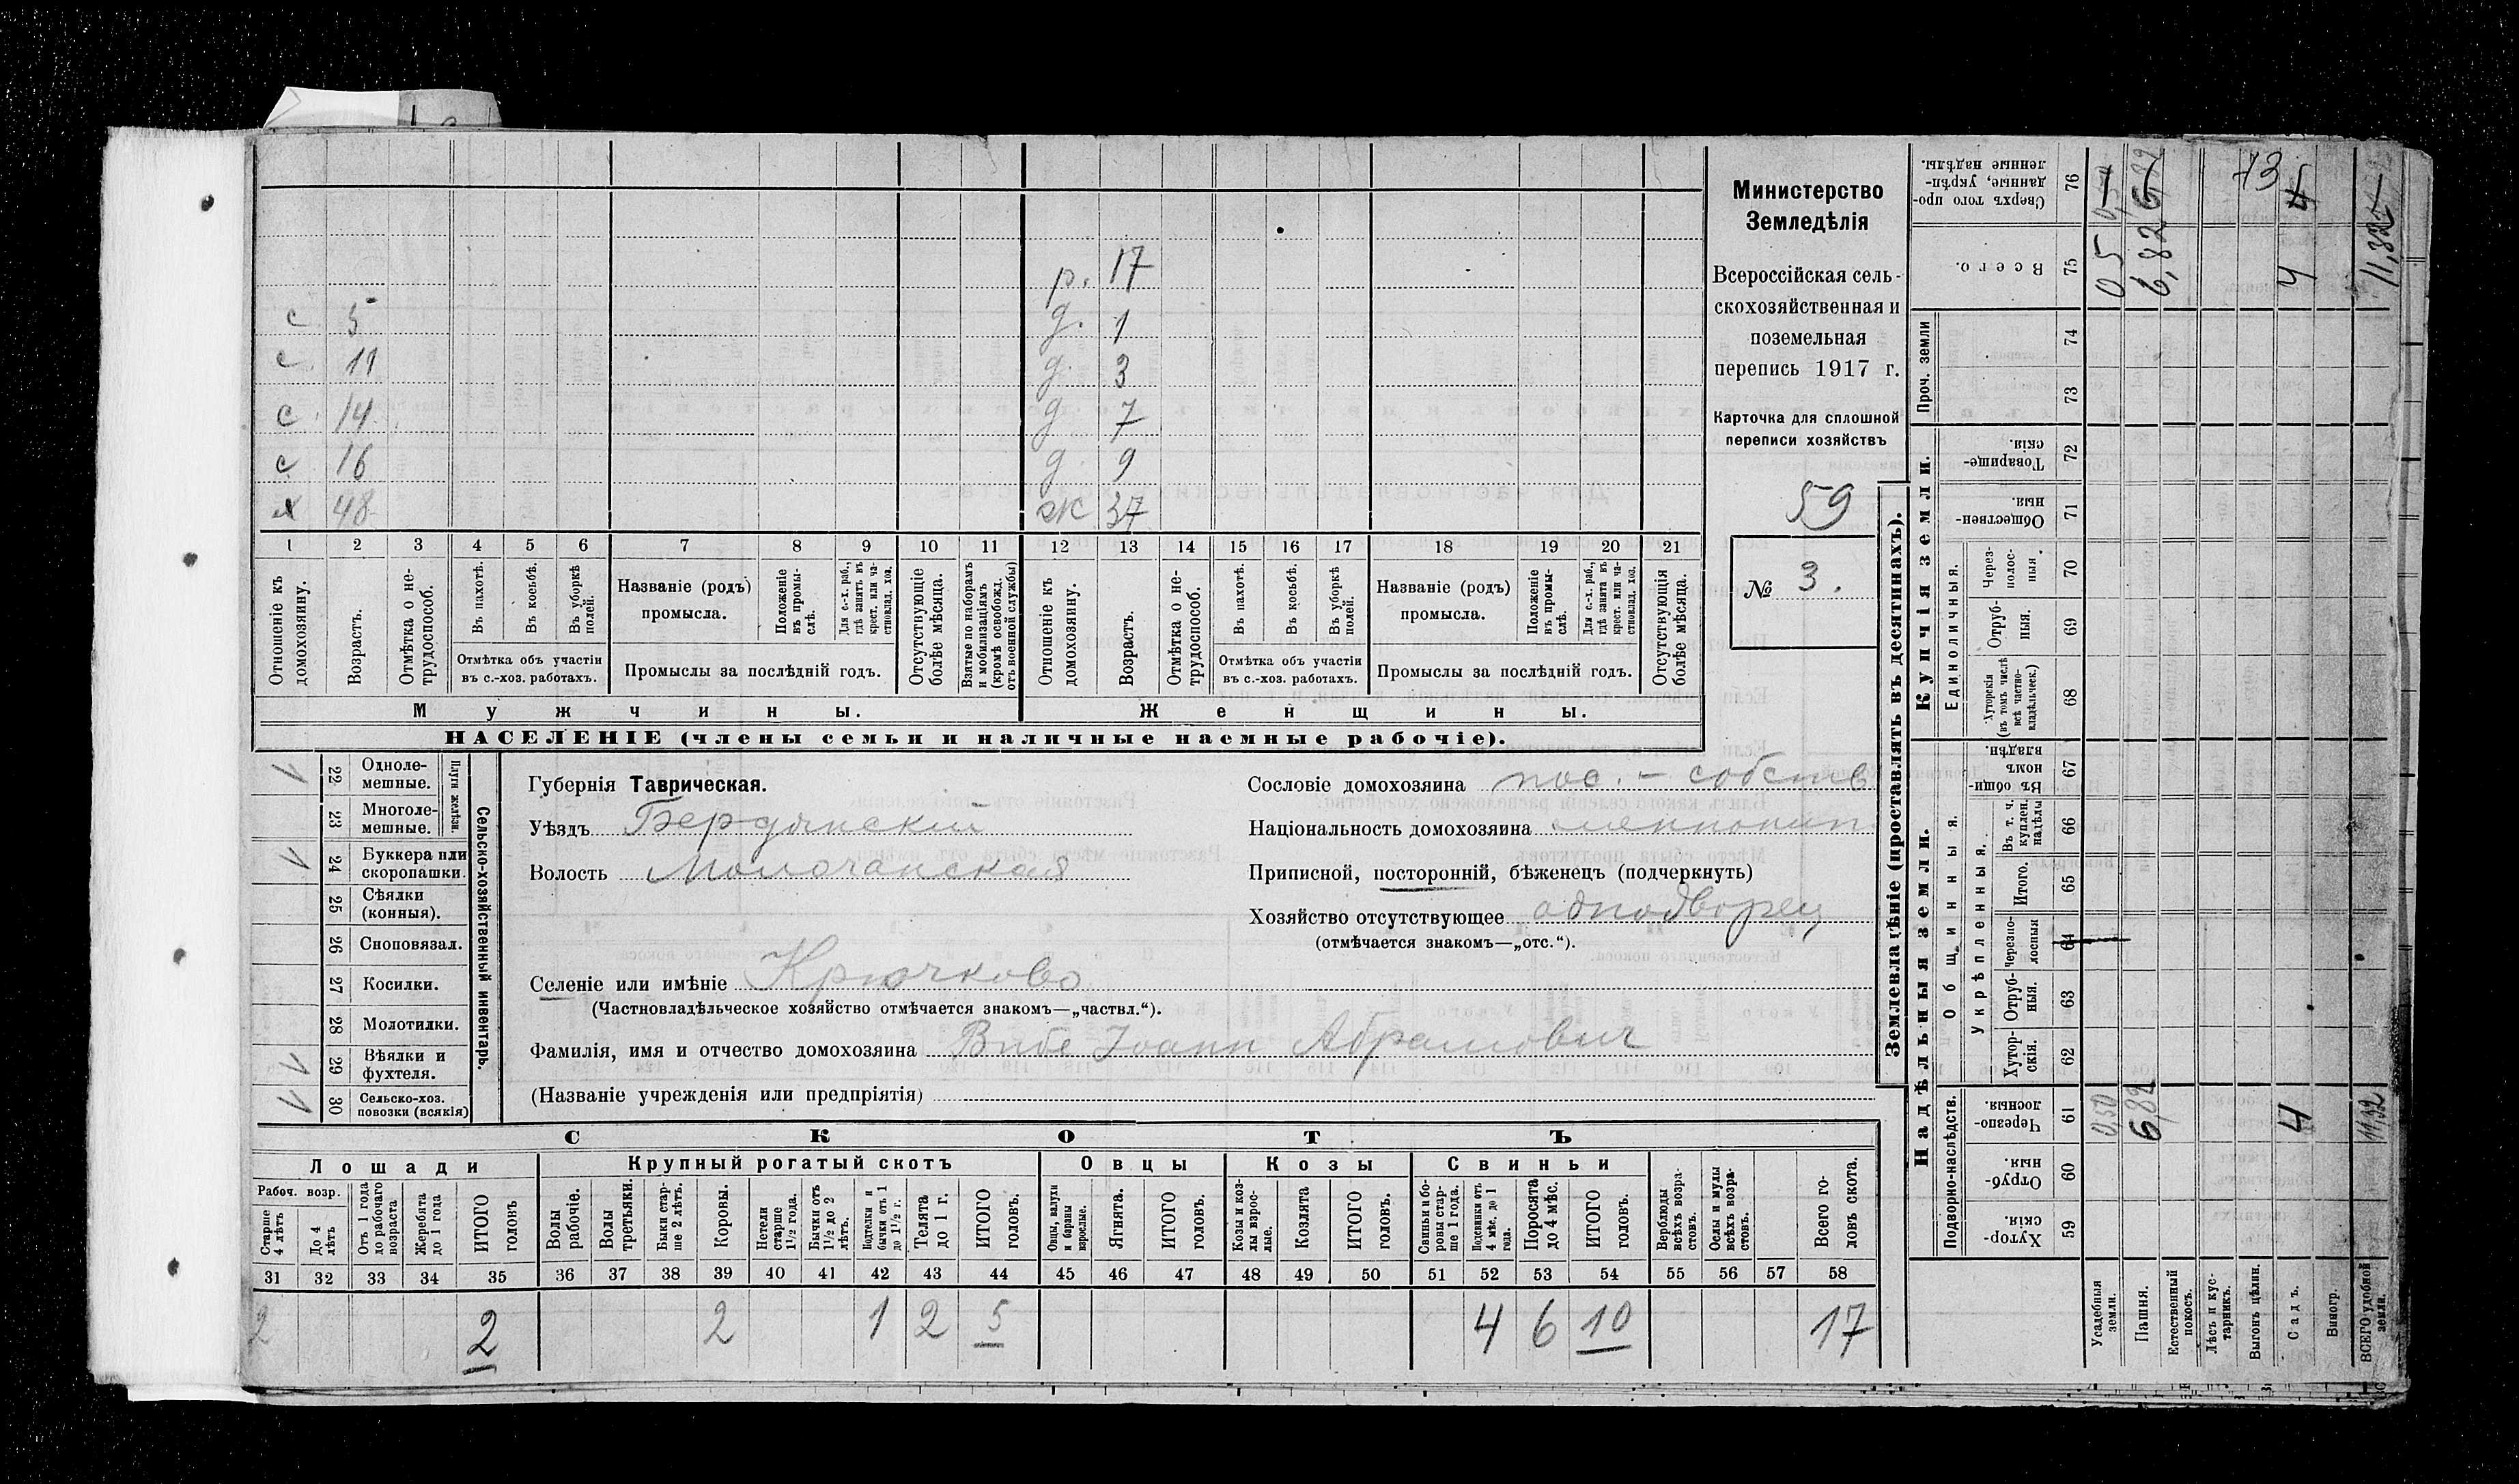 Министерство
Земледѣлія
Всероссійская сель-
скохозяйственная и
поземельная
перепись 1917 г.
Карточка для сплошной
переписи хозяйствъ
59
№ 3.
р. 17
с 5 д. 1
с 11 д. 3
с 14 д. 7
с 16 д. 9
х 48 ж 37
1 2 3 4 5 6 7 8 9 10 11 12 13 14 15 16 17 18 19 20 21
Отношеніе къ домохозяину.
Возрастъ.
Отмѣтка о не-трудоспособ.
Въ пахотѣ.
Въ косьбѣ.
Въ уборкѣ полей.
Отмѣтка объ участіи
въ с.-хоз. работахъ.
Названіе (родъ)
промысла.
Положеніе въ промы-слѣ.
Для с.-х. раб., гдѣ занятъ въ крест. или ча-стновлад. хоз.
Промыслы за послѣдній годъ.
Отсутствующіе болѣе мѣсяца.
Взятые по наборамъ и мобилизаціямъ (кромѣ освобожд. отъ военной службы)
Отношеніе къ домохозяину.
Возрастъ.
Отмѣтка о не-трудоспособ.
Въ пахотѣ.
Въ косьбѣ.
Въ уборкѣ полей.
Отмѣтка объ участіи
въ с.-хоз. работахъ.
Названіе (родъ)
промысла.
Положеніе въ промы-слѣ.
Для с.-х. раб., гдѣ занята въ крест. или ча-стновлад. хоз.
Промыслы за послѣдній годъ.
Отсутствующія болѣе мѣсяца.
Мужчины. Женщины.
НАСЕЛЕНІЕ (члены семьи и наличные наемные рабочіе).
Сельско-хозяйственный инвентарь.
Плуги желѣзн.
V 22 Одноле-мешные.
23 Многоле-мешные.
V 24 Буккера или скоропашки.
25 Сѣялки (конныя).
26 Сноповязал.
27 Косилки.
28 Молотилки.
V V 29 Вѣялки и фухтеля.
V V 30 Сельско-хоз. повозки (всякія)
Губернія Таврическая.
Уѣздъ Бердянскій
Волость Молочанская
Селеніе или имѣніе Крючково
(Частновладѣльческое хозяйство отмѣчается знакомъ—„частвл.“).
Фамилія, имя и отчество домохозяина Вибе Іоанн Абрамович
(Названіе учрежденія или предпріятія)
Сословіе домохозяина пос. - собств
Національность домохозяина меннонит
Приписной, посторонній, бѣженецъ (подчеркнуть)
Хозяйство отсутствующее однодворец
(отмѣчается знакомъ—„отс.“).
СКОТЪ
Лошади Крупный рогатый скотъ Овцы Козы Свиньи
Рабоч. возр.
Старше 4 лѣтъ
До 4 лѣтъ
Отъ 1 года до рабочаго возраста
Жеребята до 1 года
ИТОГО головъ
Волы рабочіе.
Волы третьяки.
Быки стар-ше 2 лѣтъ.
Коровы.
Нетели старше 1½ года.
Бычки отъ 1½ до 2 лѣтъ.
Подтелки и бычки отъ 1 до 1½ г.
Телята до 1 г.
ИТОГО головъ.
Овцы, валухи и бараны взрослые.
Ягнята.
ИТОГО головъ.
Козы и коз-лы взрос-лые.
Козлята
ИТОГО головъ.
Свиньи и бо-ровы стар-ше 1 года.
Подсвинки отъ 4 мѣс. до 1 года.
Поросята до 4 мѣс.
ИТОГО головъ.
Верблюды всѣхъ возра-стовъ.
Ослы и мулы всѣхъ возра-стовъ.
Всего го-ловъ скота.
31 32 33 34 35 36 37 38 39 40 41 42 43 44 45 46 47 48 49 50 51 52 53 54 55 56 57 58
2 2 2 1 2 5 4 6 10 17
Землевладѣніе (проставлять въ десятинахъ).
Надѣльныя земли. Купчія земли.
Проч. земли
Сверхъ того про-данные, укрѣп-ленные надѣлы. 76
Всего. 75
74
73
Товарище-скія. 72
Обществен-ныя. 71
Единоличныя.
Через-полос-ныя. 70
Отруб-ныя. 69
Хуторскія (въ томъ числѣ всѣ частно-владѣльческ.) 68
Въ общин-номъ владѣн. 67
Общинныя.
Укрѣпленныя.
Въ т. ч. куплен. надѣлы 66
Итого. 65
Черезпо-лосныя 64
Отруб-ныя. 63
Хутор-скія. 62
Подворно-наслѣдств.
Черезпо-лосныя. 61
Отруб-ныя. 60
Хутор-скія. 59
Усадебныя земли.
Пашня.
Естественный покосъ.
Лѣсъ и кус-тарникъ.
Выгонъ цѣлин.
Садъ.
Виногр.
ВСЕГО удобной земли.
05 6,82 4 11,32
0,50 6,82 4 11,32